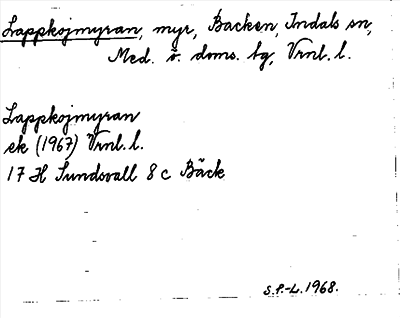 Lappkojmyran, myr, Backen, Indals sn,
Med. v. doms. bg, Vrnl. l.
Lappkojmyran
ek (1967) Vrnl. l.
17 H Sundsvall 8 c Bäck
S.P.-L. 1968.